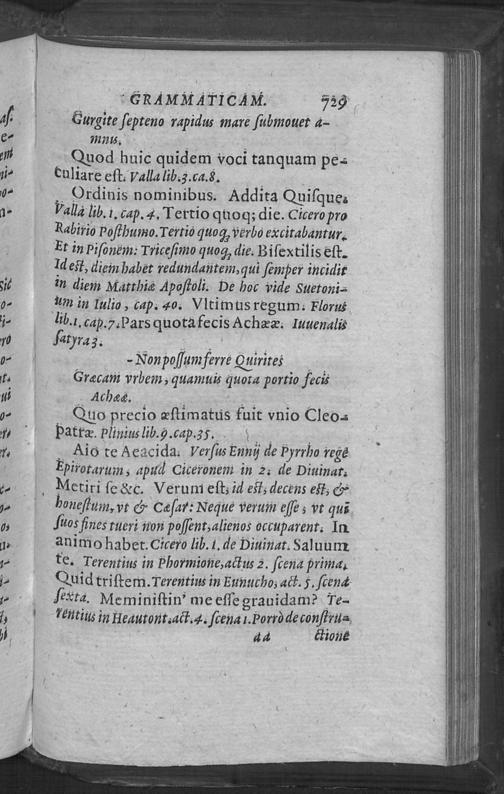 GRAMMATICAM. 729
Gurgite septeno rapidus mare submouet a-
mnis.
Quod huic quidem voci tanquam pe-
culiare est. Valla lib.3.ca.8.
Ordinis nominibus. Addita Quisque.
Valla lib. 1. cap. 4. Tertio quoq; die. Cicero pro
Rabirio Posthumo. Tertio quoq, verbo excitabantur.
Et in Pisonem: Tricesimo quoq, die. Bisextilis est.
Id est, diem habet redundantem, qui semper incidit
in diem Matthiæ Apostoli. De hoc vide Suetoni-
um in Iulio, cap. 40. Vltimus regum. Florus
lib.1.cap.7. Pars quota fecis Achææ. Iuuenalis
satyra 3.
- Non possum ferre Quirites
Græcam vrbem, quamuis quota portio fecis
Achææ.
Quo precio æstimatus fuit vnio Cleo-
patræ. Plinius lib.9.cap.35.
Aio te Aeacida. Versus Ennij de Pyrrho regē
Epirotarum, apud Ciceronem in 2. de Diuinat.
Metiri se &c. Verum est, id est, decens est, &
honestum, vt & Cæsar: Neque verum esse, vt qui
suos fines tueri non possent, alienos occuparent. In
animo habet. Cicero lib. 1. de Diuinat. Saluum
te. Terentius in Phormione, actus 2. scena prima.
Quid tristem. Terentius in Eunucho, act. 5. scena
sexta. Meministin' me esse grauidam? Te-
rentius in Heautont. act. 4. scena 1. Porrò de constru-
dd ctione